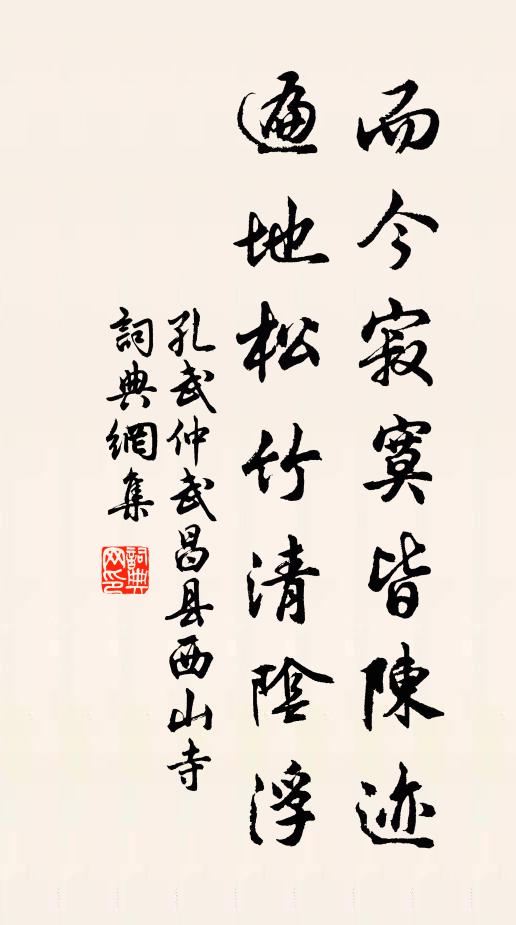 而今寂寞皆陳迹
遍地松竹清陰浮
孔武仲武昌县西山寺
詞典網集
詞典网印